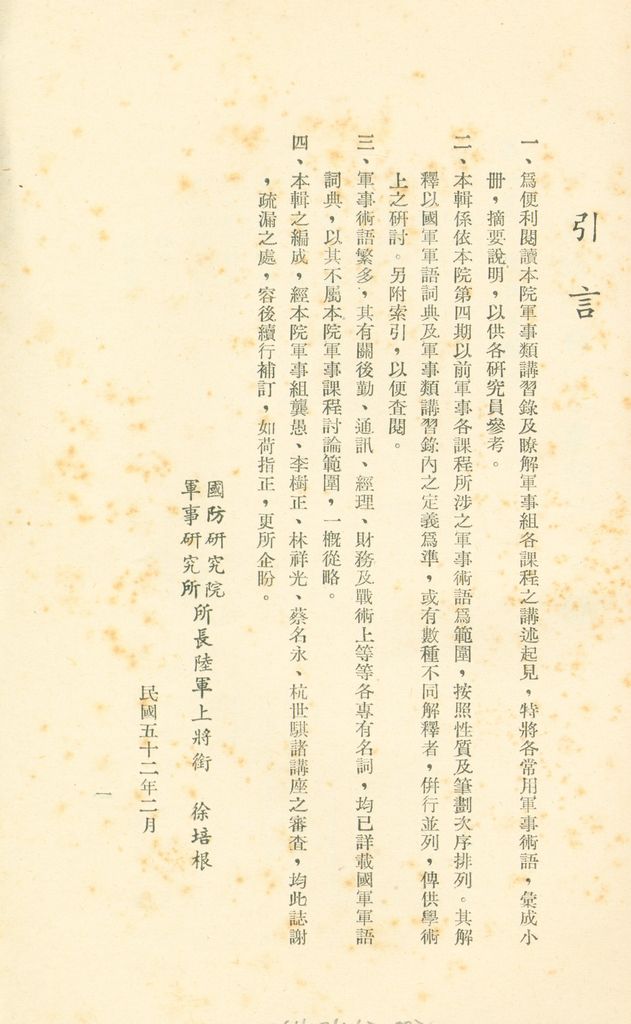 引言
一、爲便利閱讀本院軍事類講習錄及瞭解軍事組各課程之講述起見，特將各常用軍事術語，彙成小
冊，摘要說明，以供各研究員參考。
二、本輯係依本院第四期以前軍事各課程所涉之軍事術語爲範圍，按照性質及筆劃次序排列。其解
釋以國軍軍語詞典及軍事類講習錄內之定義爲準，或有數種不同解釋者，併行並列，俾供學術
上之研討。另附索引，以便查閱。
三、軍事術語繁多，其有關後勤、通訊、經理、財務及戰術上等等各專有名詞，均已詳載國軍軍語
詞典，以其不屬本院軍事課程討論範圍，一概從略。
四、本輯之編成，經本院軍事組龔愚、李樹正、林祥光、蔡名永、杭世騏諸講座之審查，均此誌謝
，疏漏之處，容後續行補訂，如荷指正，更所企盼。
國防研究院
軍事研究所
所長陸軍上將銜　徐培根
民國五十二年二月
一